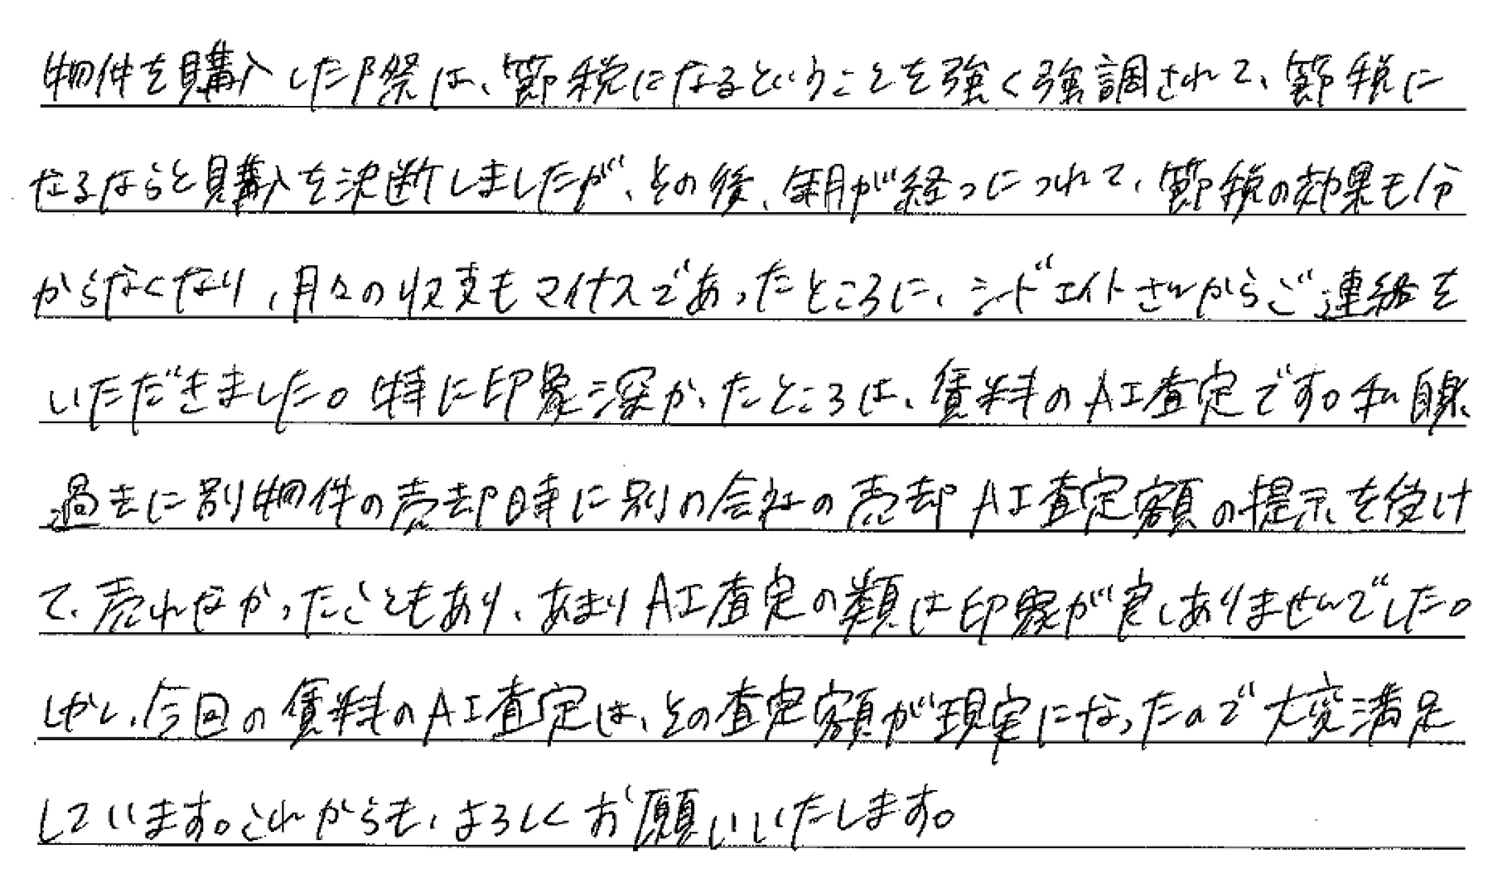 物件を購入した際は、節税になるということを強く強調されて、節税に
なるならと購入を決断しましたが、その後、年月が経つにつれて、節税の効果も分
からなくなり、月々の収支もマイナスであったところに、シードエイトさんからご連絡を
いただきました。特に印象深かったところは、賃料のAI査定です。私自身、
過去に別物件の売却時に別の会社の売却AI査定額の提示を受け
て、売れなかったこともあり、あまりAI査定の類は印象が良くありませんでした。
しかし、今回の賃料のAI査定は、その査定額が現実になったので大変満足
しています。これからも、よろしくお願いいたします。